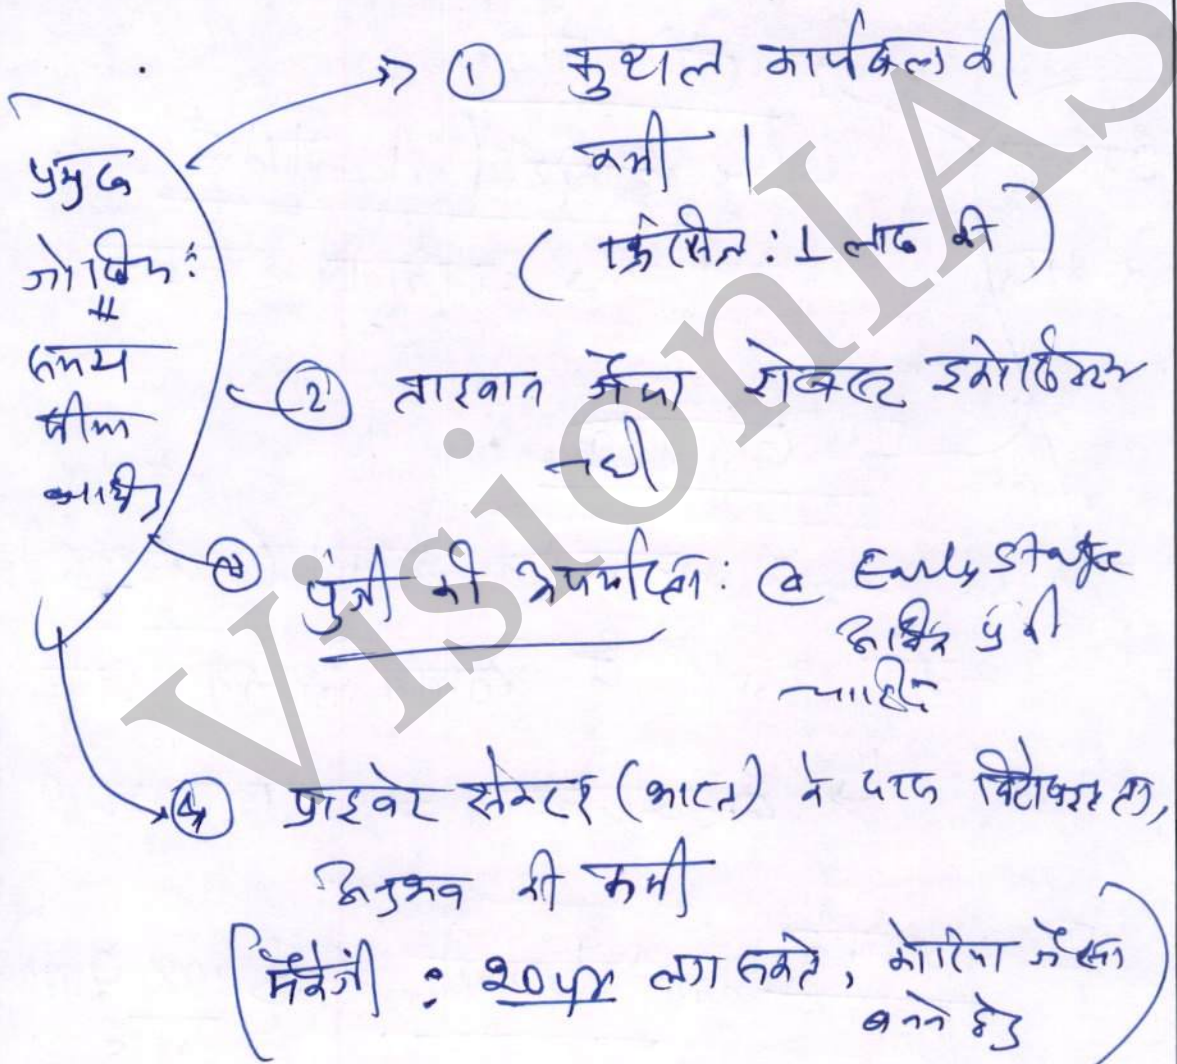 प्रमुख
जोखिम:
समय
सीमा
आदि
① कुशल कार्यबल की
कमी ।
( : 1 लाख की )
② ताइवान जैसा रोबस्ट इकोसिस्टम
नहीं
③ पूंजी की अपर्याप्तता: @ Early stage
अधिक पूंजी
चाहिए
④ प्राइवेट सेक्टर (भारत) के पास विशेषज्ञता,
अनुभव की कमी
(मैकेंजी : 20 yr लग सकते, कोरिया जैसा
बनने हेतु)
VisionIAS